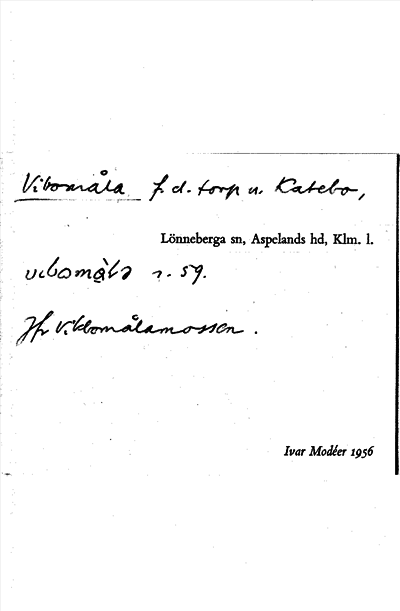 Vibomåla f. d. torp u. Katebo,
Lönneberga sn, Aspelands hd, Klm. l.
s. 59.
Jfr Vibomålamossen.
Ivar Modéer 1956